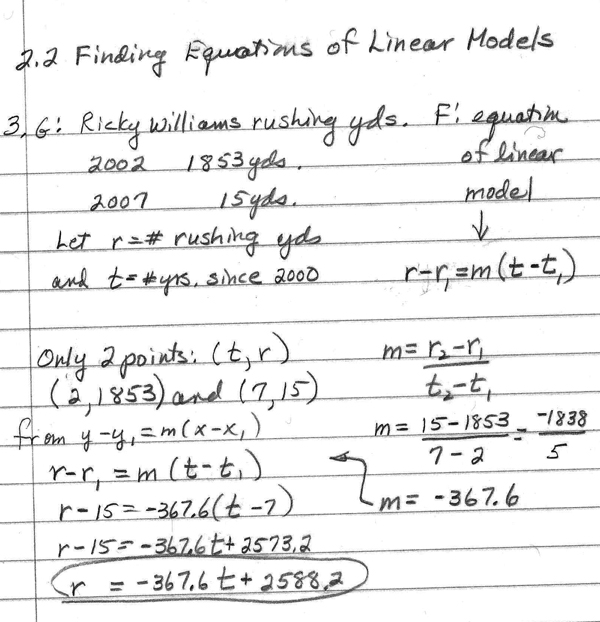 2.2 Finding Equations of Linear Models
3. G: Ricky Williams rushing yds. F: equation
2002 1853 yds. of linear
2007 15 yds. model
Let r = # rushing yds ↓
and t = # yrs. since 2000 r-r₁ = m(t-t₁)
Only 2 points: (t, r) m = r₂-r₁ / t₂-t₁
(2, 1853) and (7, 15)
from y-y₁ = m(x-x₁) m = 15-1853 / 7-2 = -1838 / 5
r-r₁ = m(t-t₁)
r-15 = -367.6(t-7) m = -367.6
r-15 = -367.6t + 2573.2
r = -367.6t + 2588.2